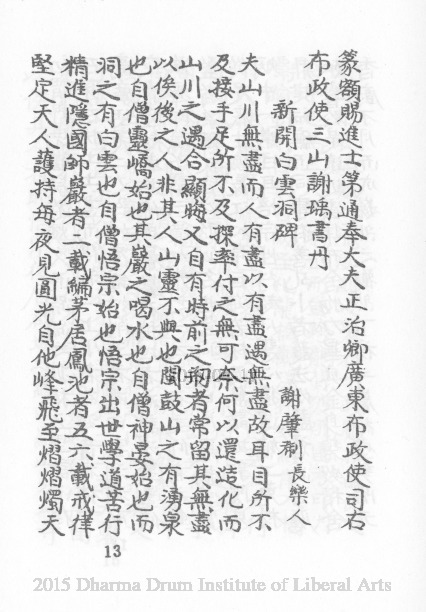 篆額賜進士第通奉大夫正治卿廣東布政使司右
布政使三山謝瑀書丹
新開白雲洞碑
謝肇制長樂人
夫山川無盡而人有盡以有盡遇無盡故耳目所不
及接手足所不及探率付之無可奈何以還造化而
山川之遇合顯晦又自有時前之者常留其無盡
以俟後之人非其人山靈不與也閩鼓山之有湧泉
也自僧靈嶠始也其巖之喝水也自僧神晏始也而
洞之有白雲也自僧悟宗始也悟宗出世學道苦行
精進隱國師巖者二載編茅居鳳池者五六載戒律
堅定天人護持每夜見圓光自他峰飛至熠熠燭天
13
2015 Dharma Drum Institute of Liberal Arts